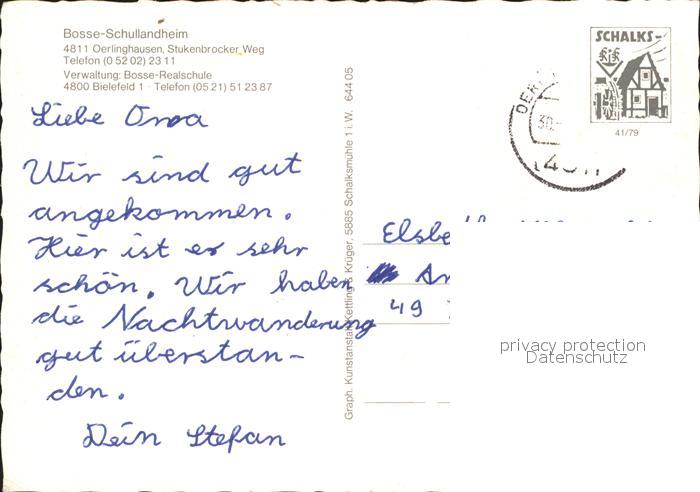 Bosse-Schullandheim
4811 Oerlinghausen, Stukenbrocker Weg
Telefon (0 52 02) 23 11
Verwaltung: Bosse-Realschule
4800 Bielefeld 1 · Telefon (05 21) 51 23 87
Liebe Oma
Wir sind gut
angekommen.
Hier ist es sehr
schön. Wir haben
die Nachtwanderung
gut überstan-
den.
Dein Stefan
Graph. Kunstanstalt Kettling & Krüger, 5885 Schalksmühle 1 i. W. 644 05
SCHALKS-
41/79
30.
49
privacy protection
Datenschutz